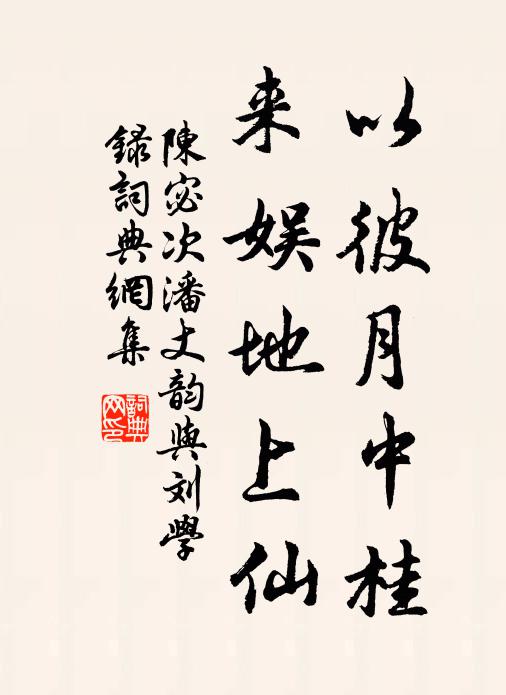 以彼月中桂
来娱地上仙
陳宓次潘丈韵與刘學
録詞典網集
詞典
网印